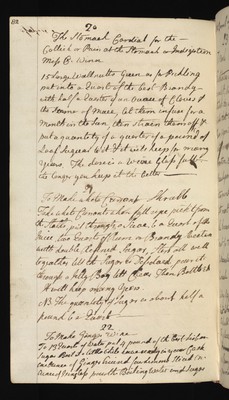 20
The Stomach Cordial for the
Collick or Pain at the Stomach or Indigestion
Miss C. Winn
15 Large Wallnutts Green as for Pickling
put into a Quart of the best Brandy
with half a Quarter of an Ounce of Cloves &
the same of Mace, let them infuse for a
month in the Sun, then strain them off &
put a quantity of a quarter of a pound of
Loaf Sugar to it & it will keep for many
Years. The dose is a Wine Glass full
the longer you keep it the better
To Make white Currant Shrubb
Take white Currants when full ripe pick'd from
the stalks, put through a Sieve, to a Quart of the
Juice, two Quarts of Rum or Brandy
with double refined Sugar, Stir it well
together till the Sugar is dissolved pour it
through a Jelly Bag till fine. Then Bottle it
It will keep many Years
NB The quantity of Sugar is about half a
pound to a Quart
22
To Make Ginger Wine
To 13 Quarts of Water put 9 pound of the best Lisbon
Sugar
Ginger bruised
pour the Boiling water and Sugar